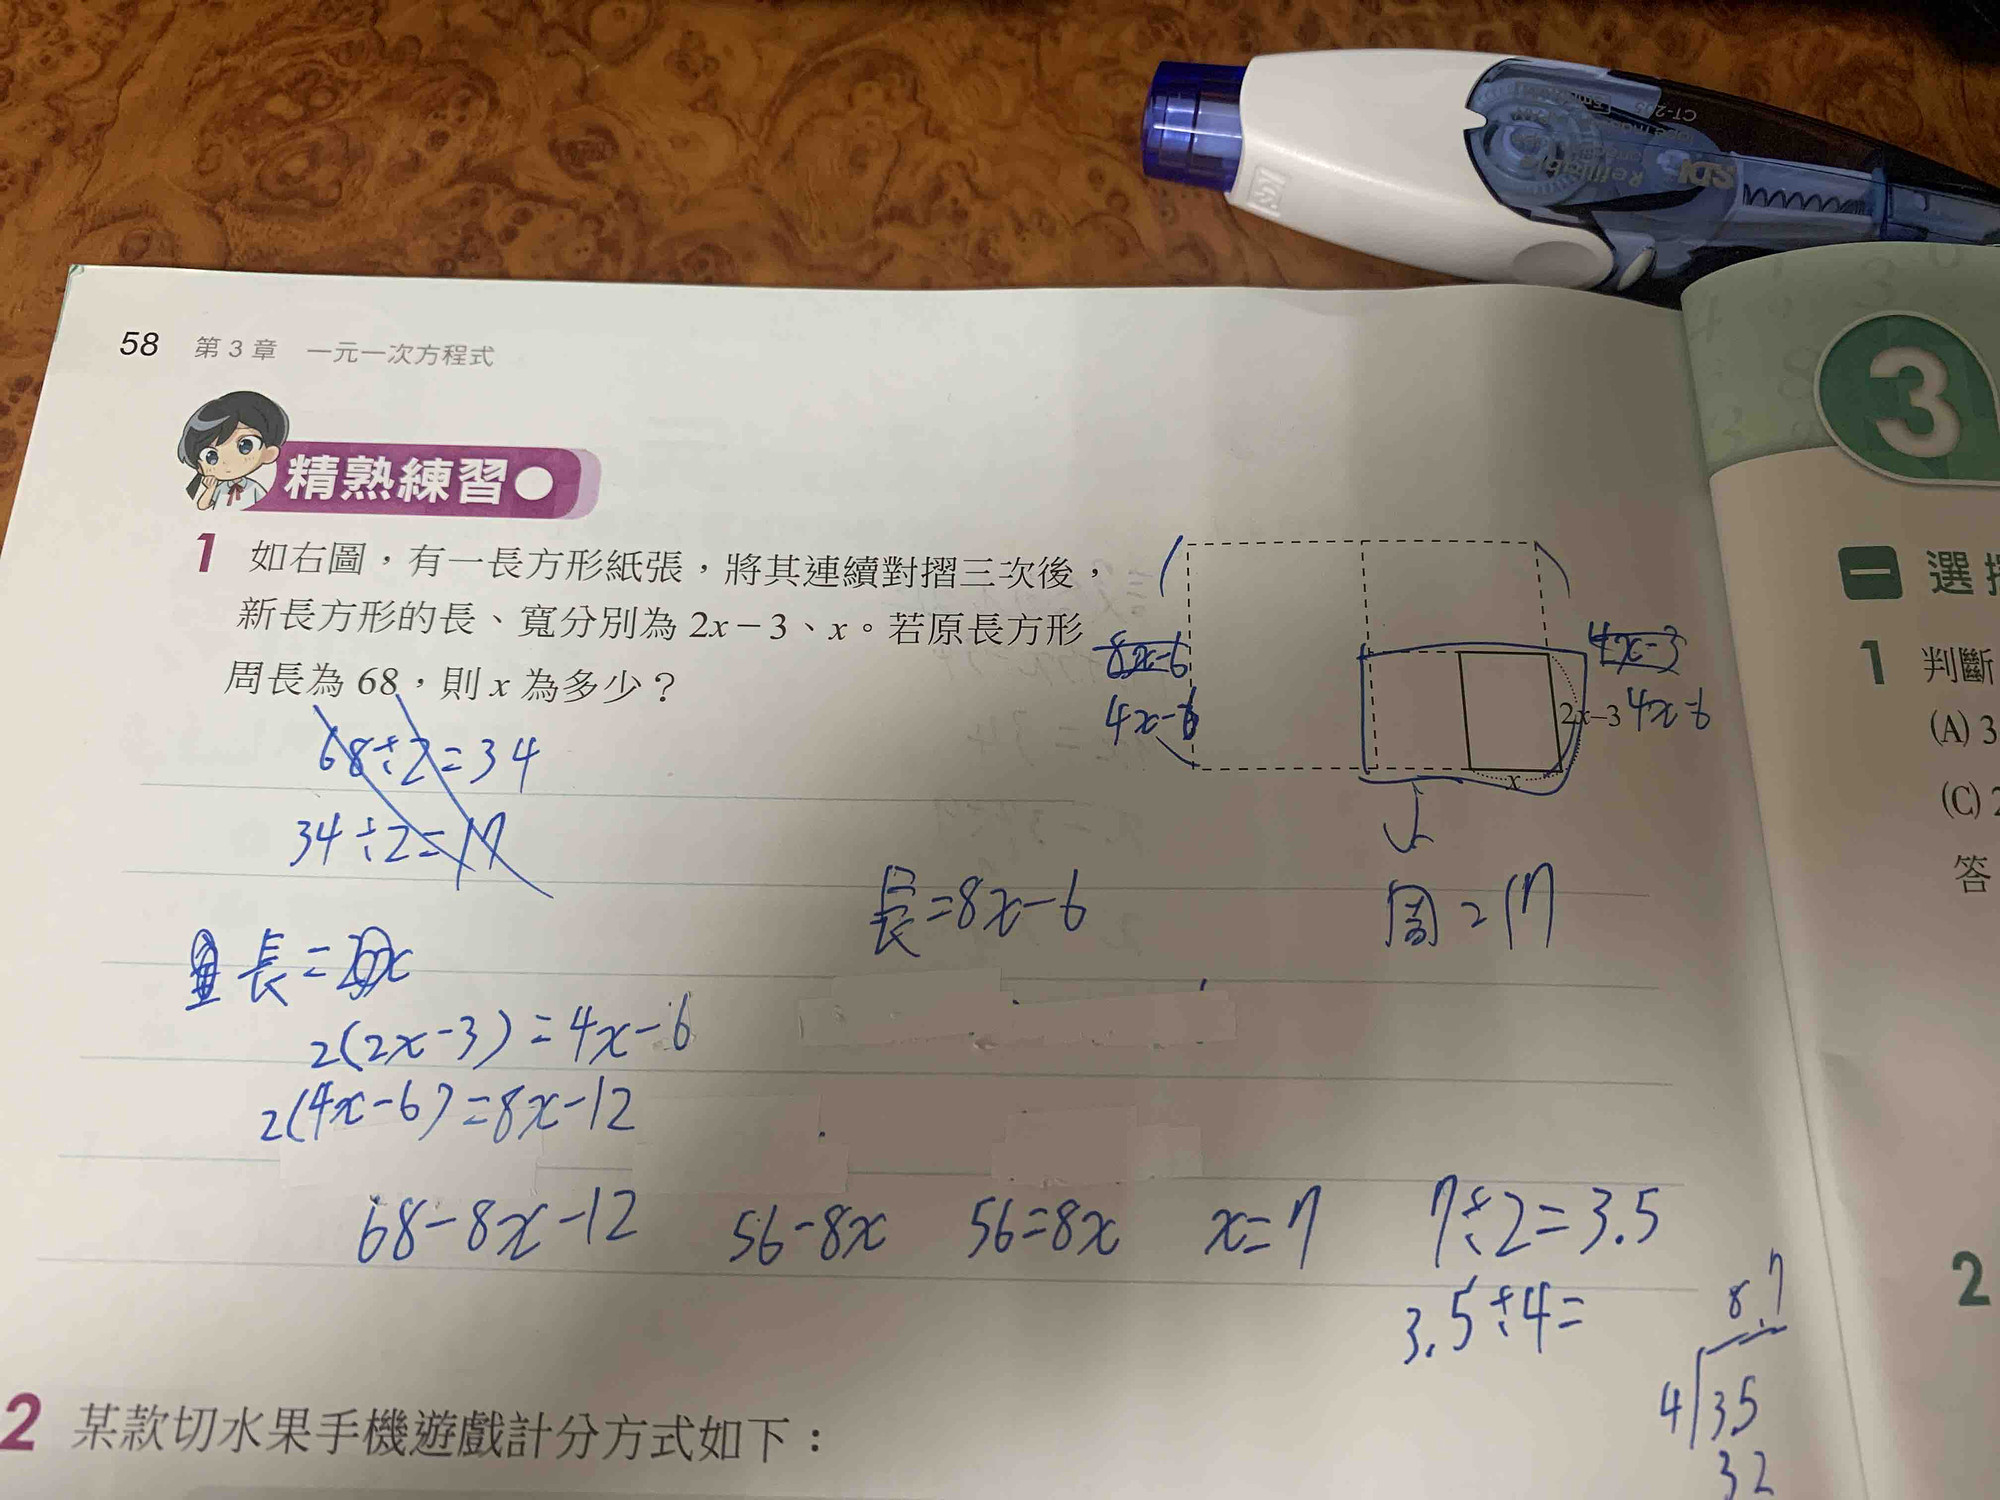 58 第3章 一元一次方程式
精熟練習
1 如右圖,有一長方形紙張,將其連續對摺三次後,
新長方形的長、寬分別為 2x-3、x。若原長方形
周長為 68,則 x 為多少?
8x-6
4x-6
4x-3
2x-3 4x-6
x
68÷2=34
34÷2=17
長=8x-6
周=17
長=
2(2x-3)=4x-6
2(4x-6)=8x-12
68-8x-12 56-8x 56=8x x=7 7÷2=3.5
3.5÷4=
8.7
4 35
32
2 某款切水果手機遊戲計分方式如下:
SDI
Refillable
CT-205
3
一 選擇
1 判斷
(A) 3
(C) 2
答
2